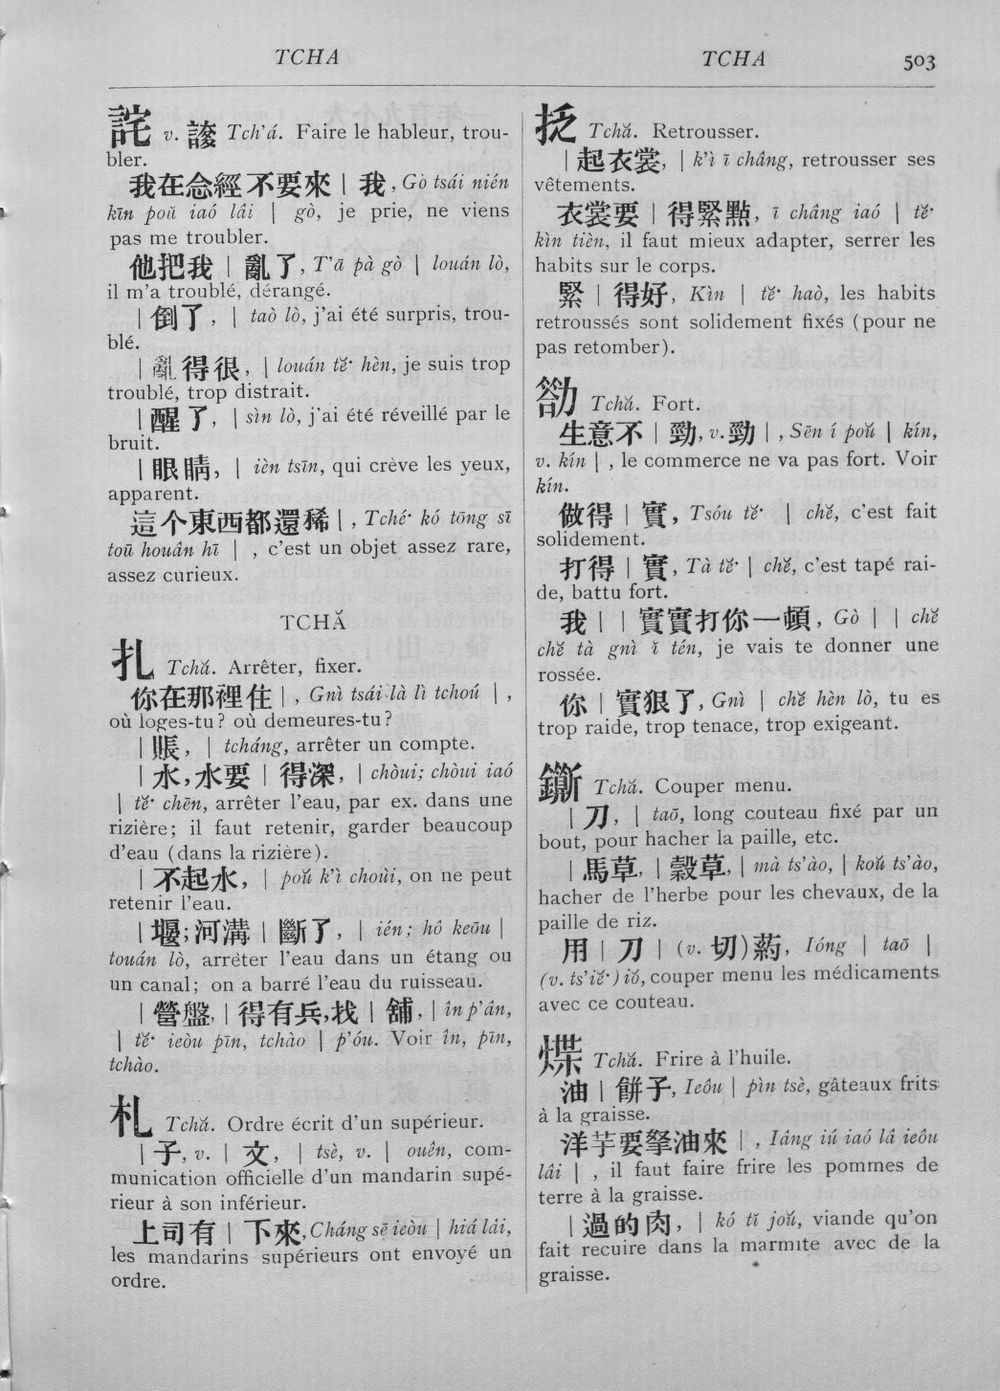 TCHA
TCHA
503
詫 v. 諁 Tch'á. Faire le hableur, trou-
bler.
我在念經不要來 | 我, Gò tsái nién
kīn poŭ iaó lâi | gò, je prie, ne viens
pas me troubler.
他把我 | 亂了, T'ā pà gò | louán lò,
il m'a troublé, dérangé.
| 倒了, | taò lò, j'ai été surpris, trou-
blé.
| 亂得很, | louán tĕ· hèn, je suis trop
troublé, trop distrait.
| 醒了, | sìn lò, j'ai été réveillé par le
bruit.
| 眼睛, | ièn tsīn, qui crève les yeux,
apparent.
這个東西都還稀 | , Tché· kó tōng sī
toū houân hī | , c'est un objet assez rare,
assez curieux.
TCHĂ
扎 Tchă. Arrêter, fixer.
你在那裡住 | , Gnì tsái là lì tchoú | ,
où loges-tu? où demeures-tu?
| 賬, | tcháng, arrêter un compte.
| 水, 水要 | 得深, | chòui; chòui iaó
| tĕ· chēn, arrêter l'eau, par ex. dans une
rizière; il faut retenir, garder beaucoup
d'eau (dans la rizière).
| 不起水, | poŭ k'ì choùi, on ne peut
retenir l'eau.
| 堰; 河溝 | 斷了, | ién; hô keōu |
touán lò, arrêter l'eau dans un étang ou
un canal; on a barré l'eau du ruisseau.
| 營盤, | 得有兵, 找 | 舖, | în p'ân,
| tĕ· ieòu pīn, tchào | p'óu. Voir în, pīn,
tchào.
札 Tchă. Ordre écrit d'un supérieur.
| 子, v. | 文, | tsè, v. | ouên, com-
munication officielle d'un mandarin supé-
rieur à son inférieur.
上司有 | 下來, Cháng sē ieòu | hiá lâi,
les mandarins supérieurs ont envoyé un
ordre.
抸 Tchă. Retrousser.
| 起衣裳, | k'ì ī châng, retrousser ses
vêtements.
衣裳要 | 得緊點, ī châng iaó | tĕ·
kìn tièn, il faut mieux adapter, serrer les
habits sur le corps.
緊 | 得好, Kìn | tĕ· haò, les habits
retroussés sont solidement fixés (pour ne
pas retomber).
劄 Tchă. Fort.
生意不 | 勁, v. 勁 | , Sēn í poŭ | kín,
v. kín | , le commerce ne va pas fort. Voir
kín.
做得 | 實, Tsóu tĕ· | chĕ, c'est fait
solidement.
打得 | 實, Tà tĕ· | chĕ, c'est tapé rai-
de, battu fort.
我 | | 實實打你一頓, Gò | | chĕ
chĕ tà gnì ĭ tén, je vais te donner une
rossée.
你 | 實狠了, Gnì | chĕ hèn lò, tu es
trop raide, trop tenace, trop exigeant.
Tchă. Couper menu.
| 刀, | taō, long couteau fixé par un
bout, pour hacher la paille, etc.
| 馬草, | 穀草, | mà ts'ào, | koŭ ts'ào,
hacher de l'herbe pour les chevaux, de la
paille de riz.
用 | 刀 | (v. 切) 葯, Ióng | taō |
(v. ts'iĕ·) iŏ, couper menu les médicaments
avec ce couteau.
煠 Tchă. Frire à l'huile.
油 | 餅子, Ieôu | pìn tsè, gâteaux frits
à la graisse.
洋芋要拏油來 | , Iâng iú iaó lâ ieôu
lâi | , il faut faire frire les pommes de
terre à la graisse.
| 過的肉, | kó tĭ joŭ, viande qu'on
fait recuire dans la marmite avec de la
graisse.